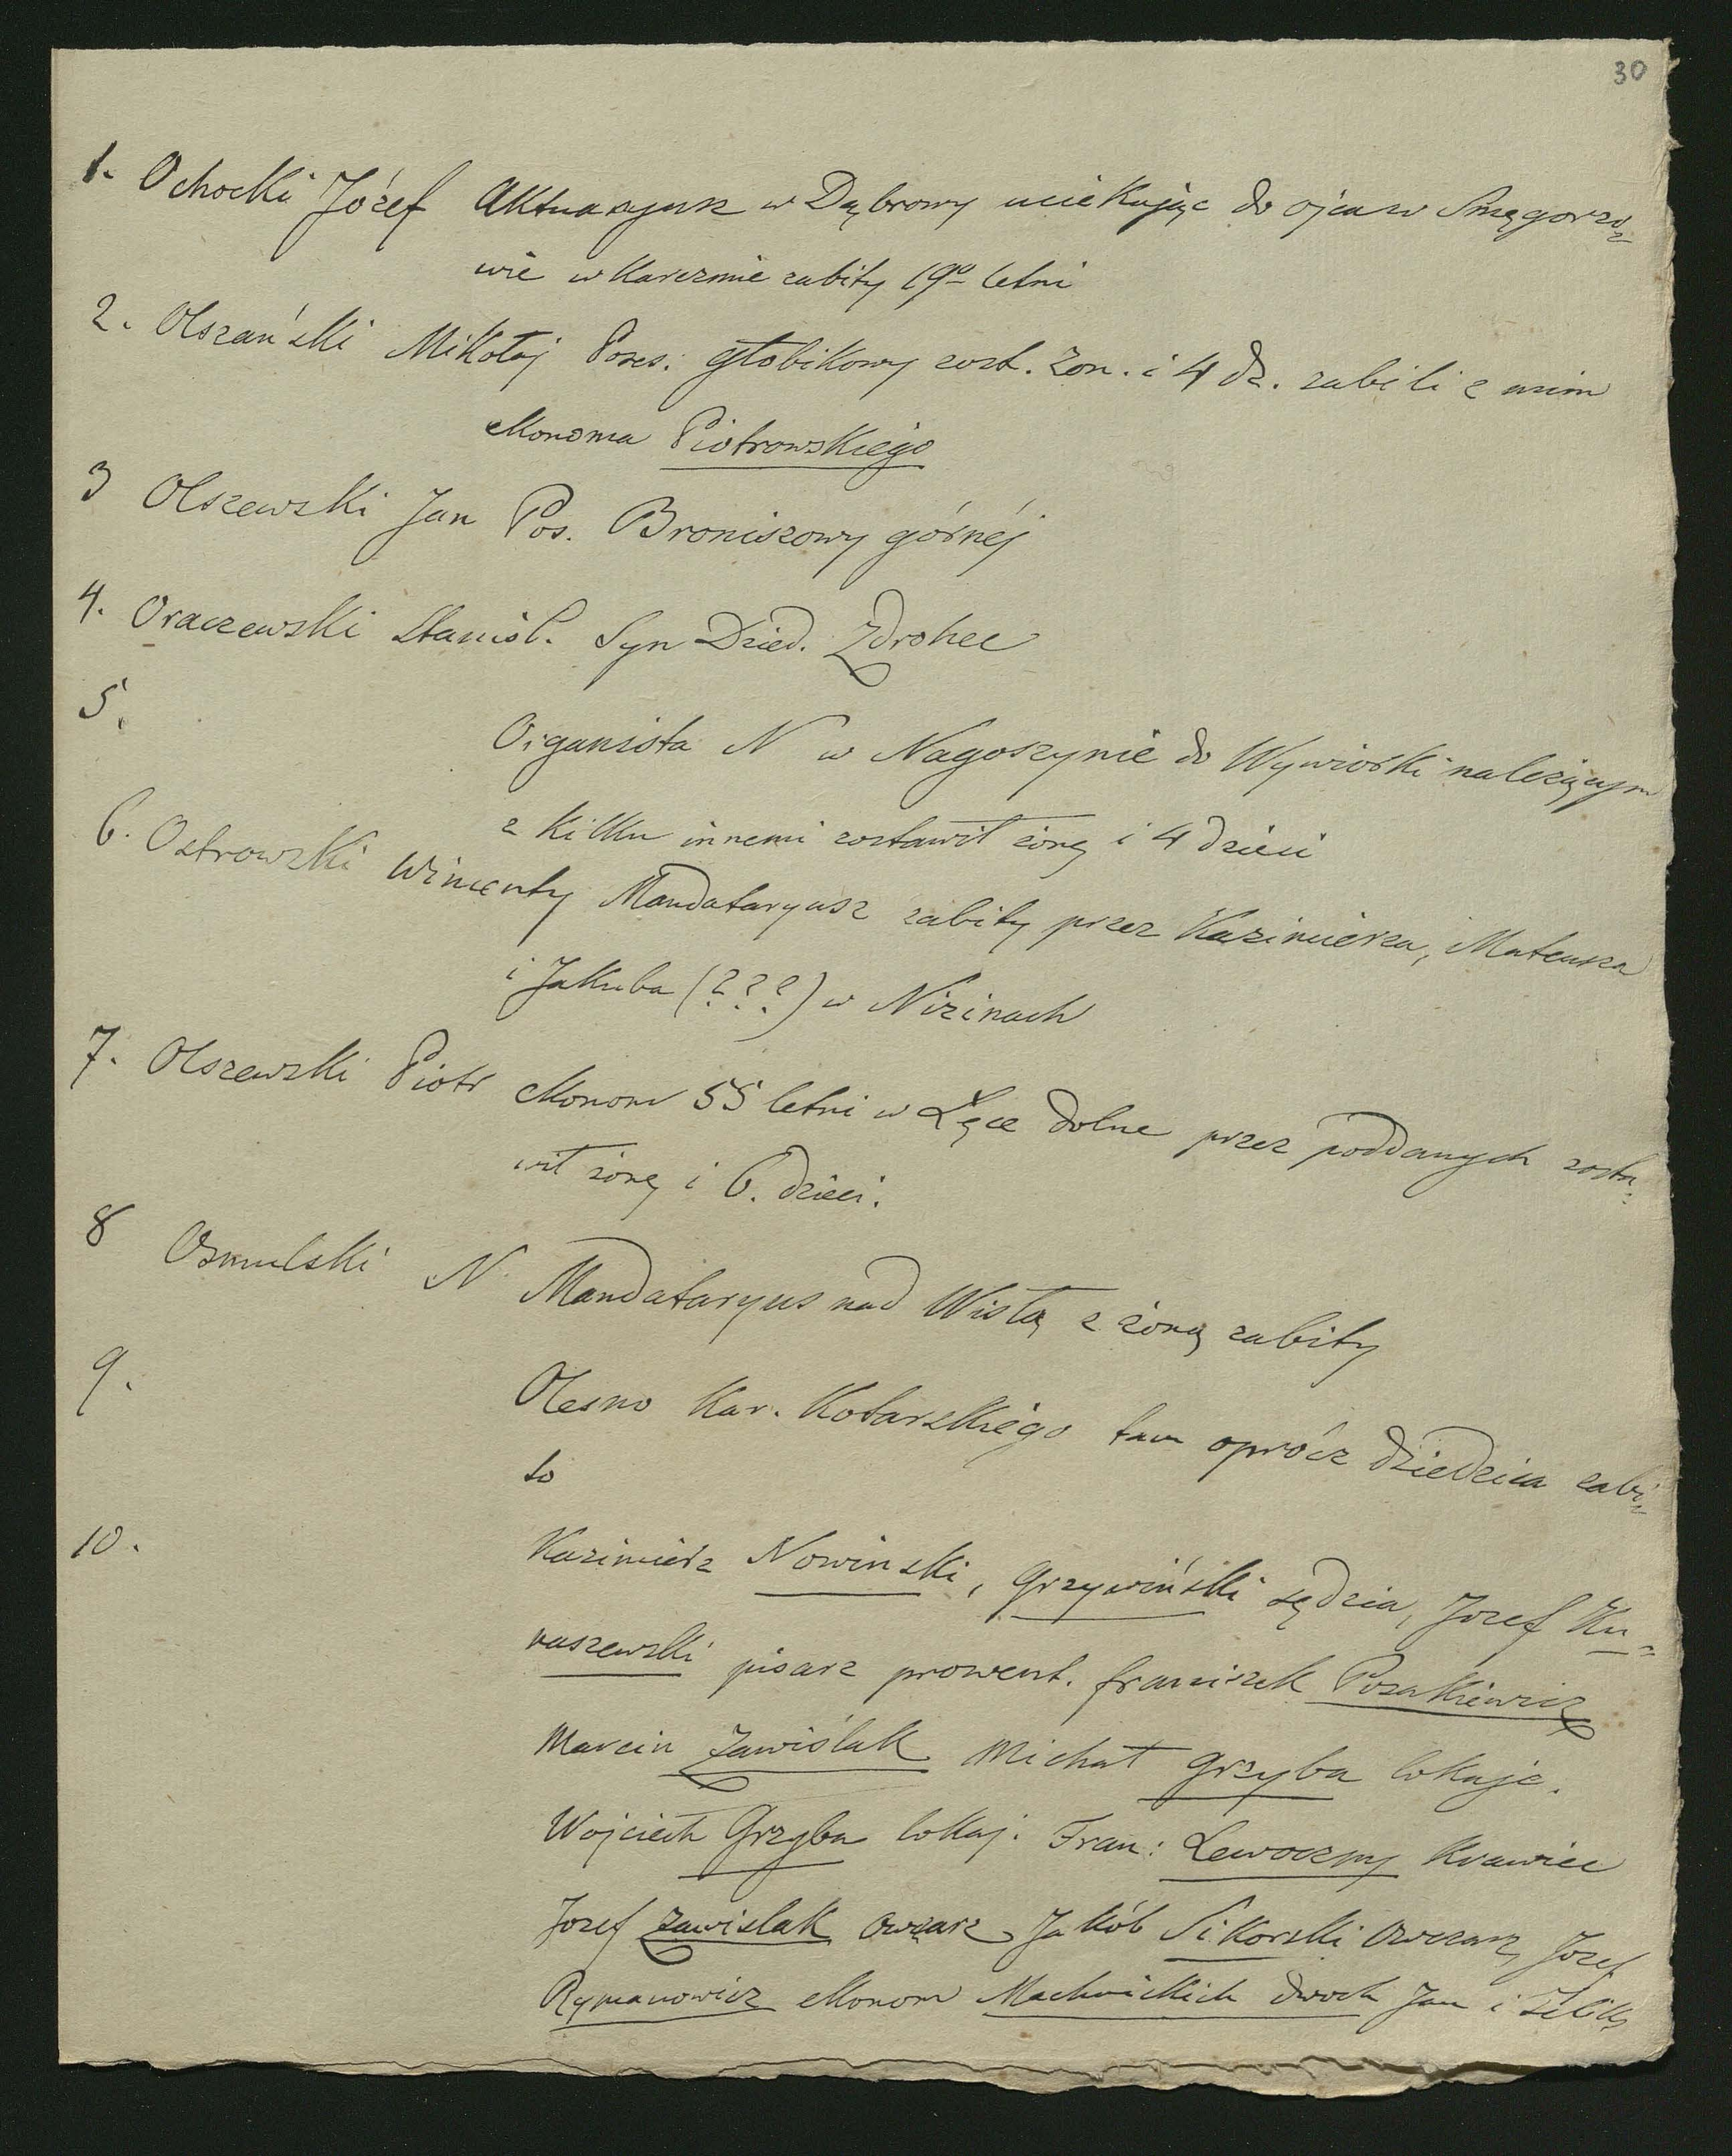 30
1. Ochocki Józef Aktuaryusz w Dąbrowy uciekając do ojca w Smęgorzo=
wie w karczmie zabity 19o letni
2. Olszański Mikołaj Poses. Głobikowy zost. żon. i 4 dz. zabili z nim
ekonoma Piotrowskiego
3 Olszewski Jan Pos. Broniszowy górnéj
4. Oraczewski Stanisł. Syn Dzied. Zdrohec
5.
Organista N w Nagoszynie do Wywiórki należącym
z kilku innemi zostawił żonę i 4 dzieci
6. Ostrowski Wincenty Mandataryusz zabity przez Kazimierza, Mateusza
i Jakuba (???) w Nizinach
7. Olszewski Piotr ekonom 55 letni w Łęce dolne przez poddanych zosta=
wił żonę i 6. dzieci.
8 Osmulski N Mandataryus nad Wisłą z żoną zabity
9.
Olesno Kar. Kotarskiego tam oprócz dziedzica zabi=
to
10.
Kazimierz Nowinski, Grzywiński sędzia, Jozef Ku=
naszewski pisarz prowent. franciszek Posakiewicz
Marcin Zawiślak Michał Grzyba lokaje.
Wojciech Grzyba lokaj. Fran: Lewoczny krawiec
Jozef Zawislak owczarz Jakób Sikorski owczarz, Jozef
Rymanowicz ekonom Machnickich dwoch Jan i Feliks